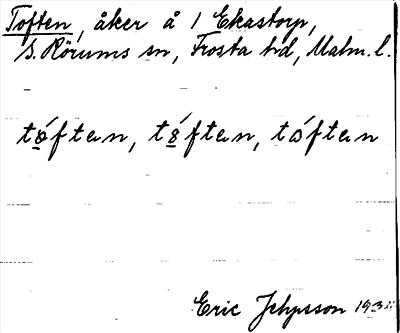 Toften, åker å 1 Ekastorp,
S. Rörums sn, Frosta hd, Malm. l.
tǿften, tǿften, tóften
Eric